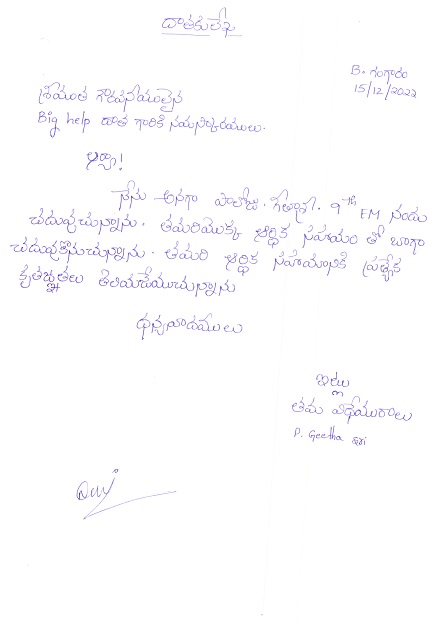 దాతకులేఖ
B. గంగారం
15/12/2022
శ్రీమంత గౌరవనీయులైన
Big help దాత గారికి నమస్కారములు.
ఆర్యా!
నేను అనగా పాలోజు. గీతాశ్రీ. 9th EM నందు
చదువుచున్నాను. తమరియొక్క ఆర్థిక సహాయం తో బాగా
చదువుకొనుచున్నాను. తమరి ఆర్థిక సహాయానికి ప్రత్యేక
కృతజ్ఞతలు తెలియచేయుచున్నాను
ధన్యవాదములు
ఇట్లు
తమ విధేయురాలు
P. Geetha sri